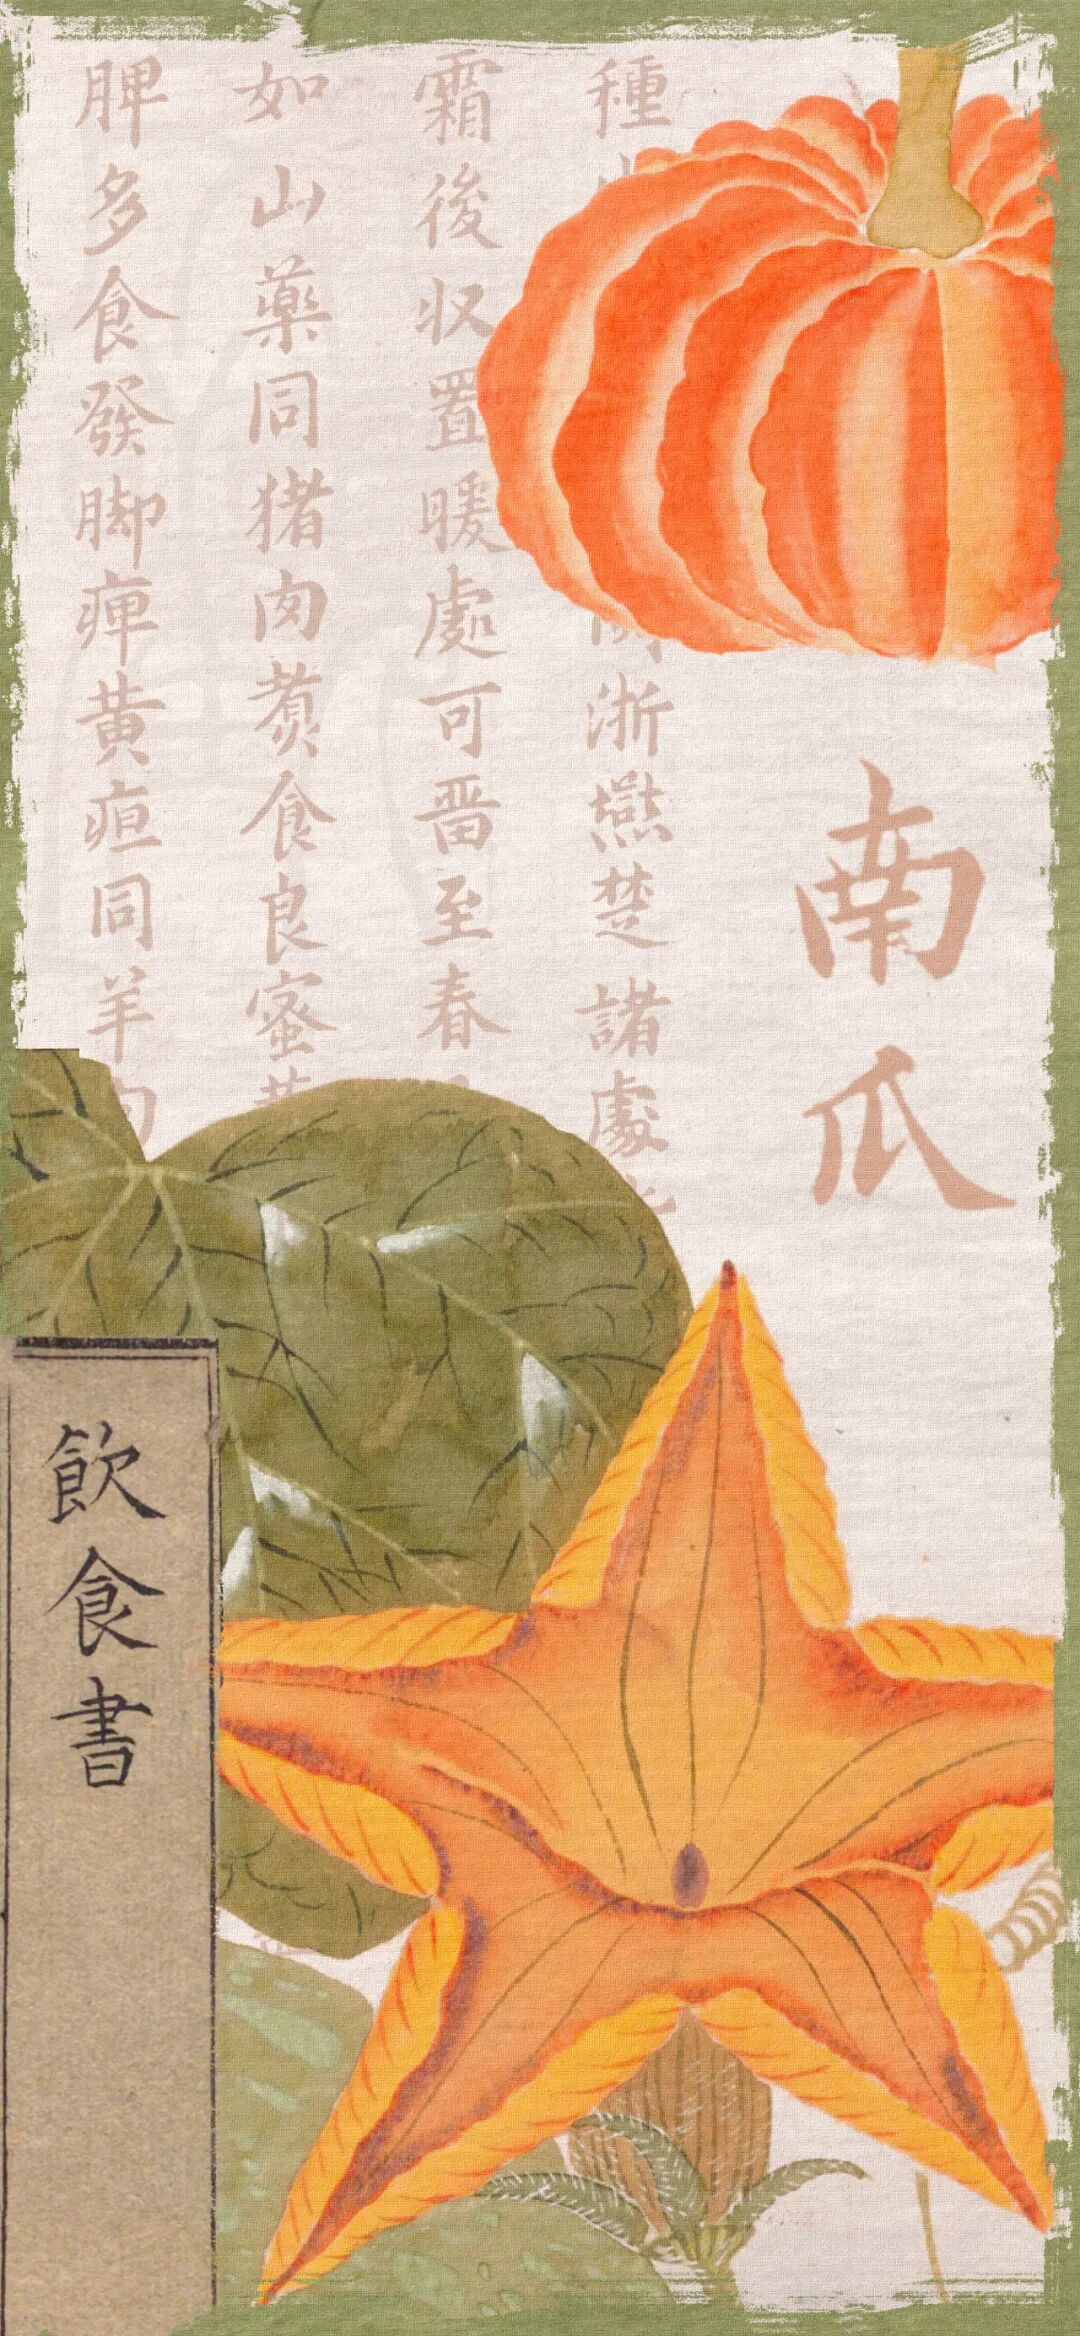 南瓜
種
浙燕楚諸處
霜後収置暖處可啚至春
如山藥同猪肉煑食良蜜
脾多食發脚痺黄疸同羊
飲食書